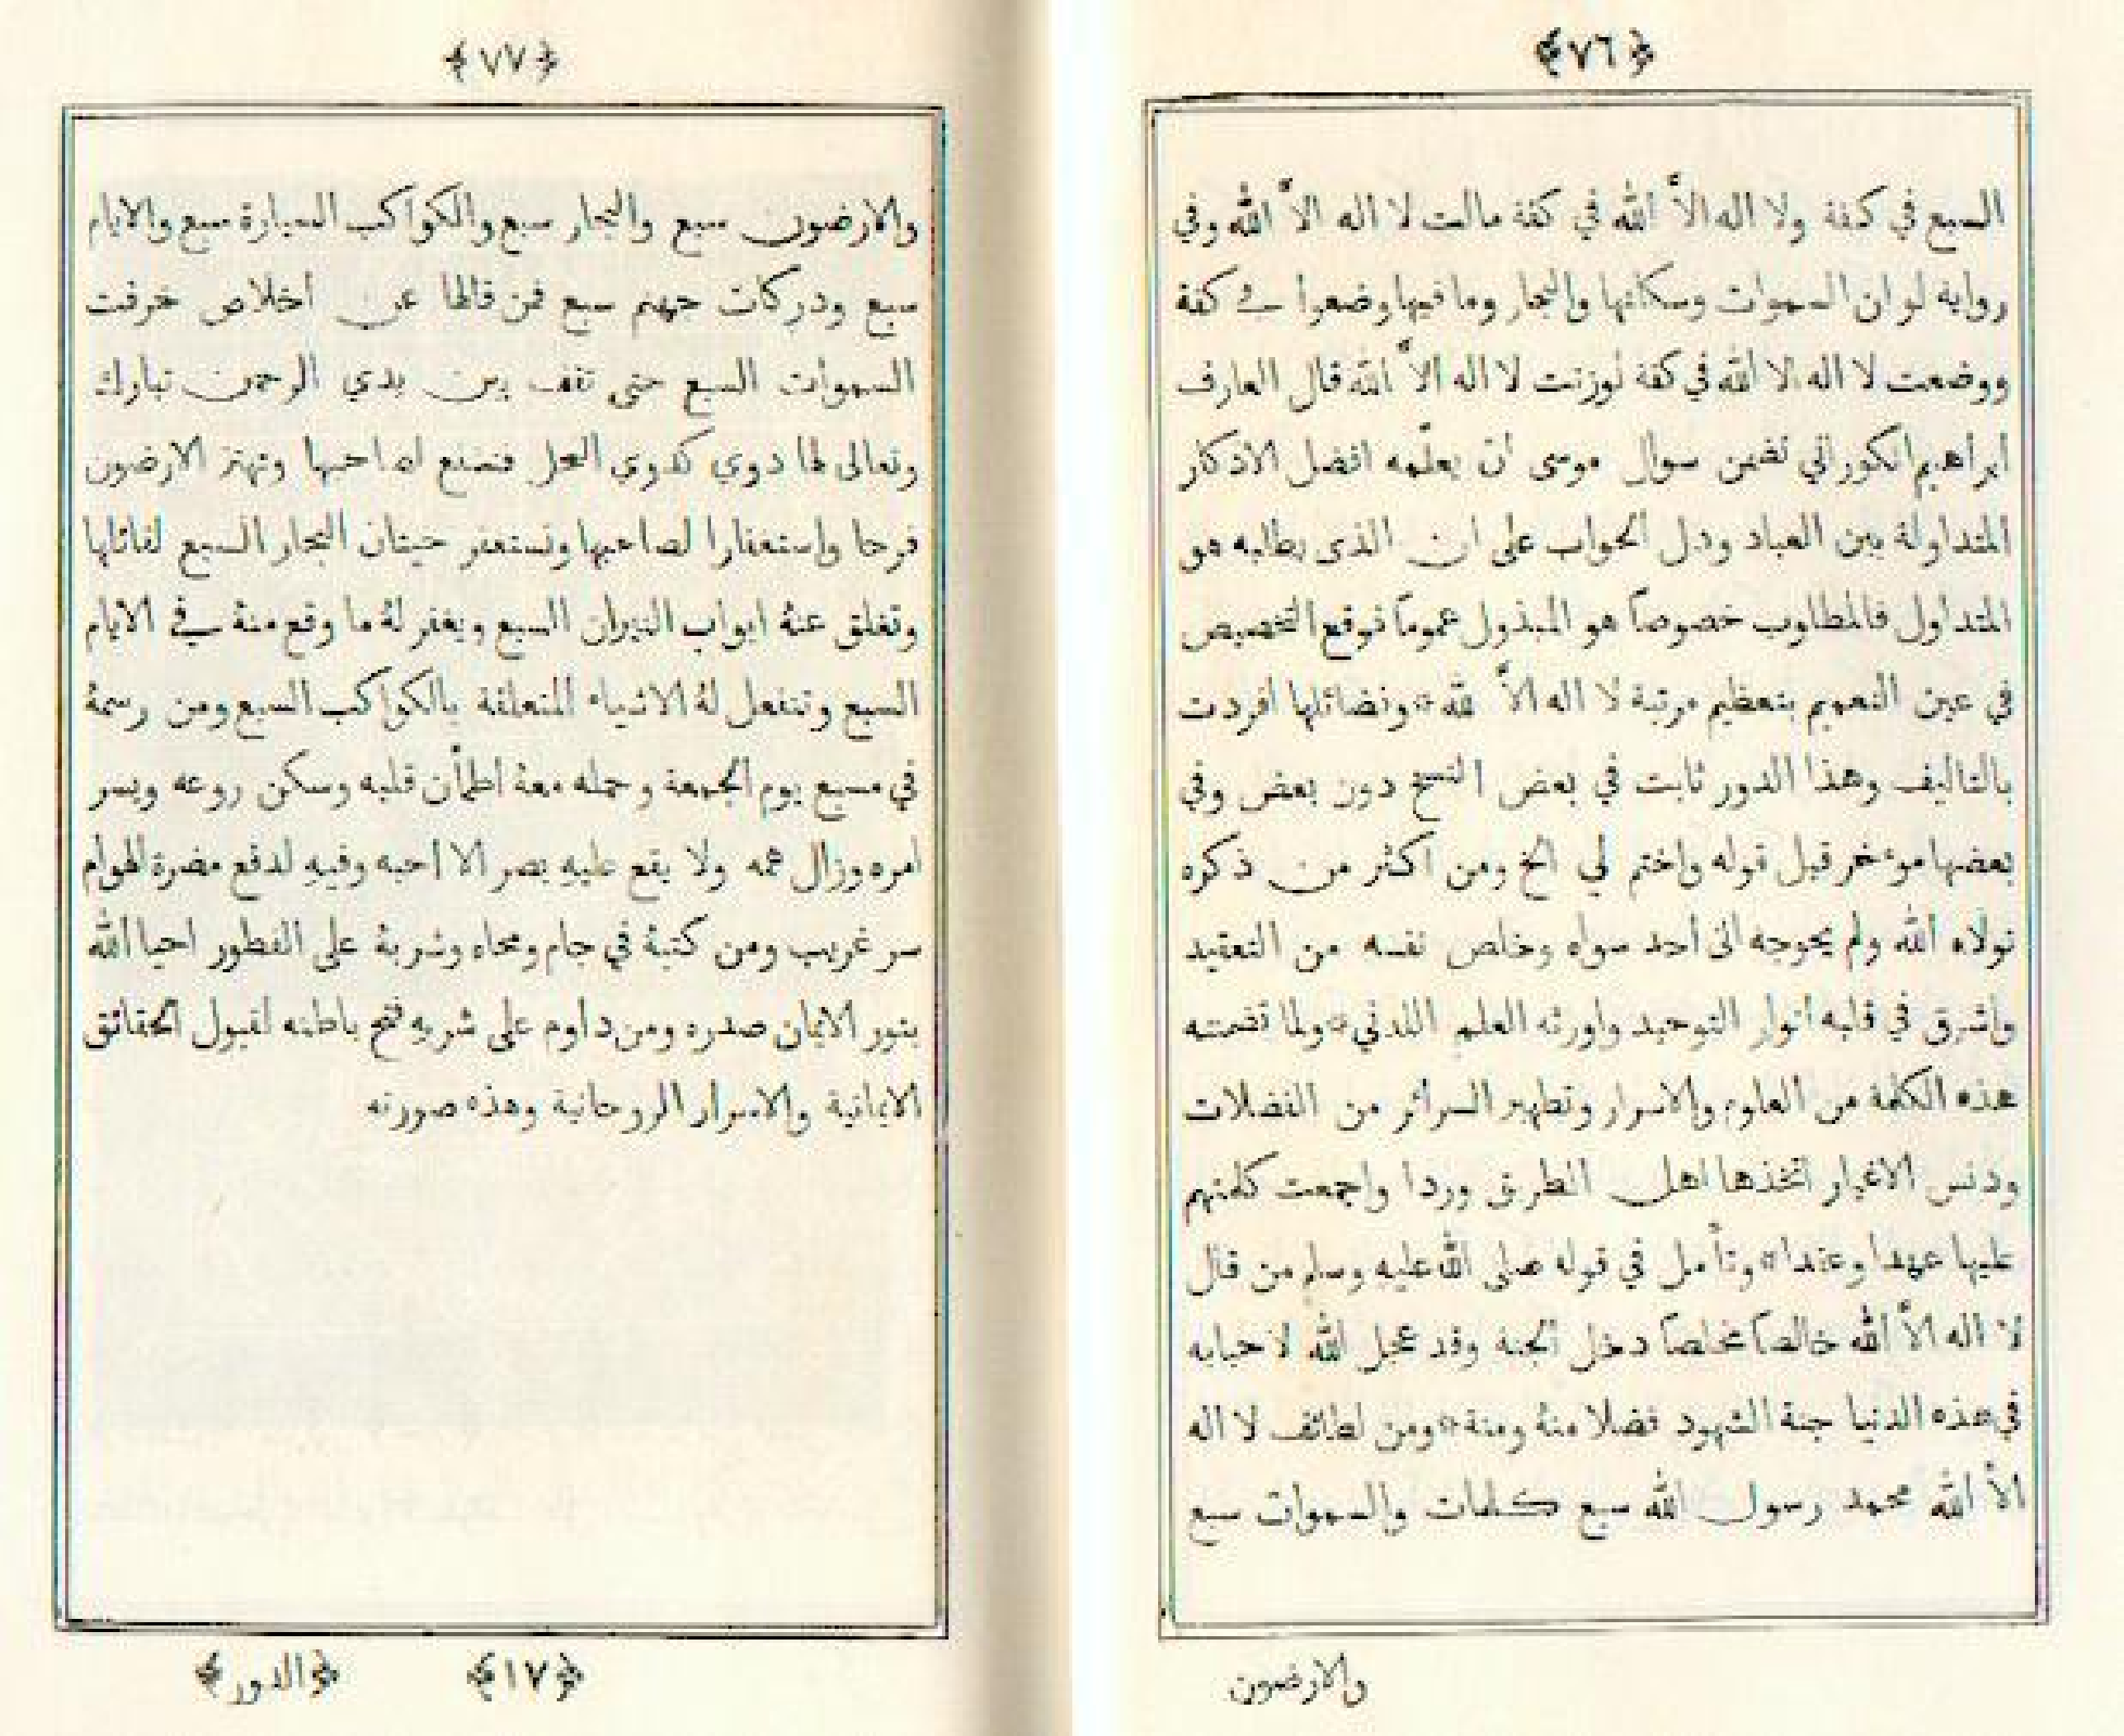 ﴿٧٦﴾
السبع في كفة ولا اله الاّ الله في كفة مالت لا اله الاّ الله وفي
رواية لو ان السموات وسكانها والبحار وما فيها وضعوا في كفة
ووضعت لا اله الا الله في كفة لوزنت لا اله الاّ الله قال العارف
ابراهيم الكوراني تضمن سوال موسى ان يعلّمه افضل الاذكار
المتداولة بين العباد ودل الجواب على ان الذى يطلبه هو
المتداول فالمطلوب خصوصاً هو المبذول عموماً فوقع التخصيص
في عين التعميم بتعظيم مرتبة لا اله الاّ الله * وفضائلها افردت
بالتاليف وهذا الدور ثابت في بعض النسخ دون بعض وفي
بعضها موٴخر قبل قوله واختم لي الخ ومن اكثر من ذكره
تولاه الله ولم يحوجه الى أحد سواه وخلص نفسه من التعقيد
واشرق في قلبه انوار التوحيد واورثه العلم اللدني * ولما تضمنته
هذه الكلمة من العلوم والاسرار وتطهير السرائر من الفضلات
ودنس الاغيار اتخذها اهل الطريق وردا واجمعت كلمتهم
عليها عهدا وعقدا * وتأمل في قوله صلى الله عليه وسلم من قال
لا اله الاّ الله خالصاً مخلصاً دخل الجنة وقد عجل الله لاحبابه
في هذه الدنيا جنة الشهود فضلا منهُ ومنة * ومن لطائف لا اله
الاّ الله محمد رسول الله سبع كلمات والسموات سبع
والارضون
﴿٧٧﴾
والارضون سبع والبحار سبع والكواكب السيارة سبع والايام
سبع ودركات جهنم سبع فمن قالها عن اخلاص خرقت
السموات السبع حتى تقف بين يدي الرحمن تبارك
وتعالى لها دوي كدوى النحل فتشفع لصاحبها وتهتز الارضون
فرحا واستغفارا لصاحبها وتستغفر حيتان البحار السبع لقائلها
وتغلق عنهُ ابواب النيران السبع ويغفر لهُ ما وقع منهُ في الايام
السبع وتنفعل لهُ الاشياء المتعلقة بالكواكب السبع ومن رسمهُ
في مسبع يوم الجمعة وحمله معهُ اطمأن قلبه وسكن روعه ويسر
امره وزال همه ولا يقع عليهِ بصر الا احبه وفيهِ لدفع مضرة الهوام
سر غريب ومن كتبهُ في جام ومحاه وشربهُ على الفطور احيا الله
بنور الايمان صدره ومن داوم على شربه فتح باطنه لقبول الحقائق
الايمانية والاسرار الروحانية وهذه صورته
﴿١٧﴾ ﴿الدور﴾